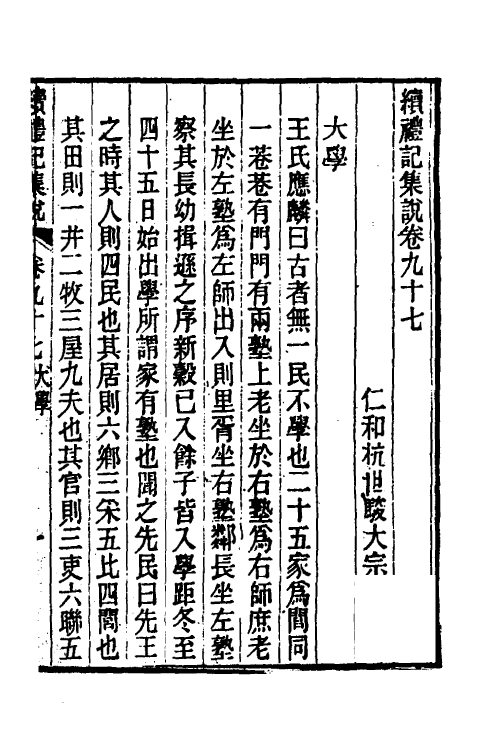 續禮記集說卷九十七
仁和杭世駿大宗
大學
王氏應麟曰古者無一民不學也二十五家爲閭同
一巷巷有門門有兩塾上老坐於右塾爲右師庶老
坐於左塾爲左師出入則里胥坐右塾鄰長坐左塾
察其長幼揖遜之序新穀已入餘子皆入學距冬至
四十五日始出學所謂家有塾也聞之先民曰先王
之時其人則四民也其居則六鄉三采五比四閭也
其田則一井二牧三屋九夫也其官則三吏六聯五
續禮記集說 卷九十七大學 一